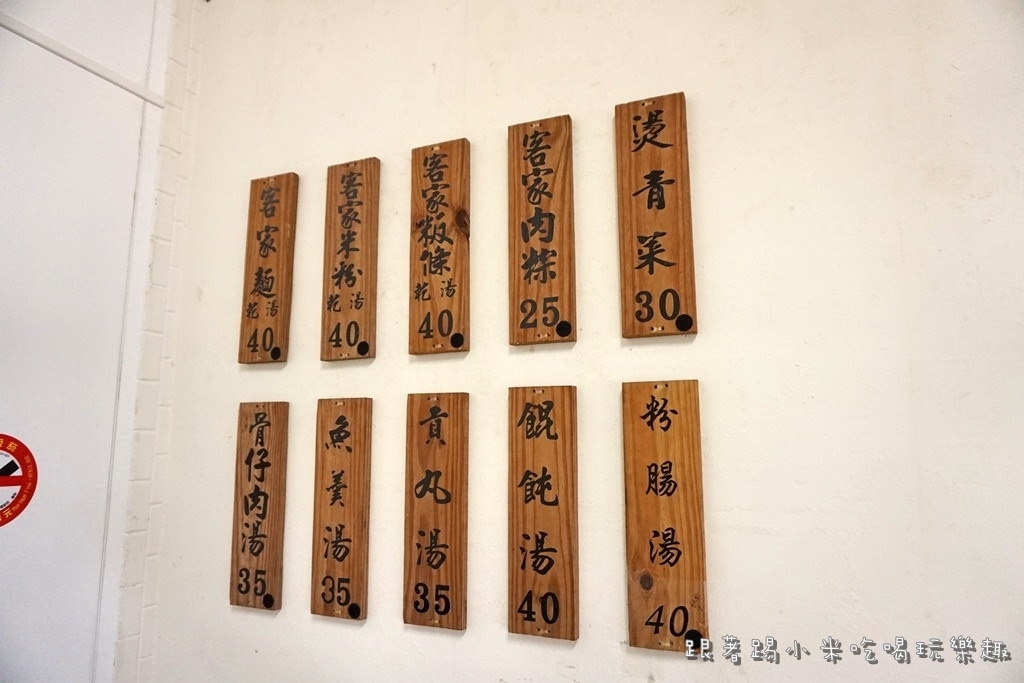 客家麵
乾 湯
40
客家米粉
乾 湯
40
客家粄條
乾 湯
40
客家肉粽
25
燙青菜
30
骨仔肉湯
35
魚羹湯
35
貢丸湯
35
餛飩湯
40
粉腸湯
40
跟著踢小米吃喝玩樂趣